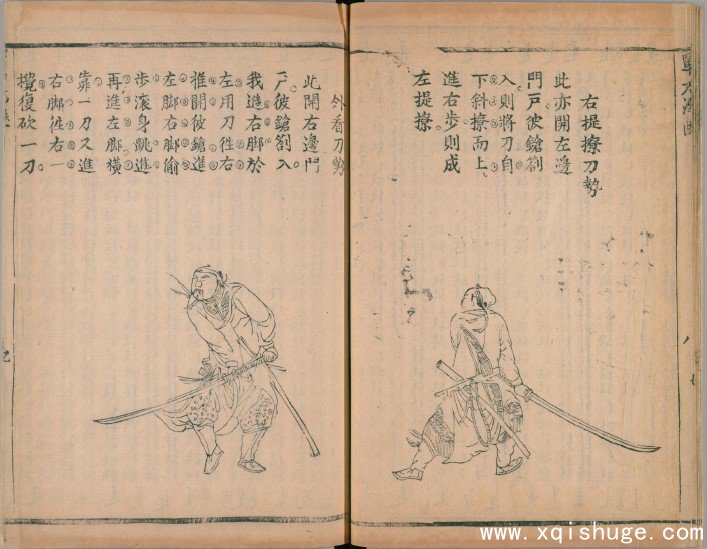 右提撩刀勢
此亦開左邊
門戸彼鎗劄
入則將刀自
下斜撩而上。
進右步則成
左提撩。
外看刀勢
此開右邊門
戸彼鎗劄入
我進右脚於
左用刀徃右
推開彼鎗進
左脚右脚偷
步滚身跳進
再進左脚橫
靠一刀又進
右脚徃右一
攪復砍一刀。
www.xqishuge.com